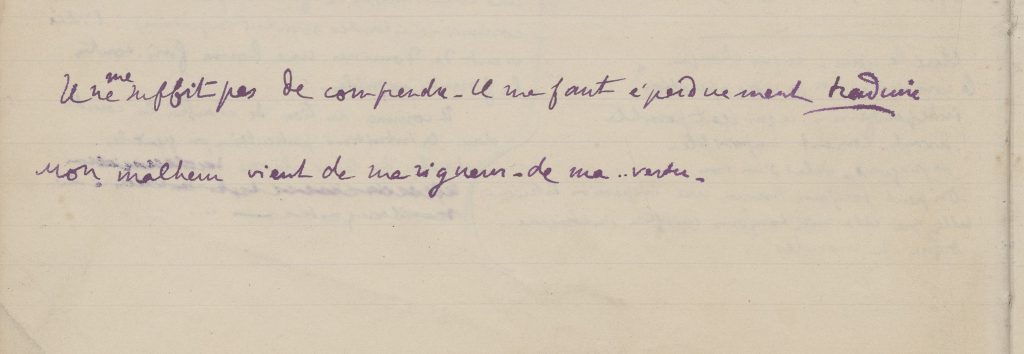 Il ne me suffit pas de comprendre - Il me faut éperduement traduire
Mon malheur vient de ma rigueur - de ma .. vertu -